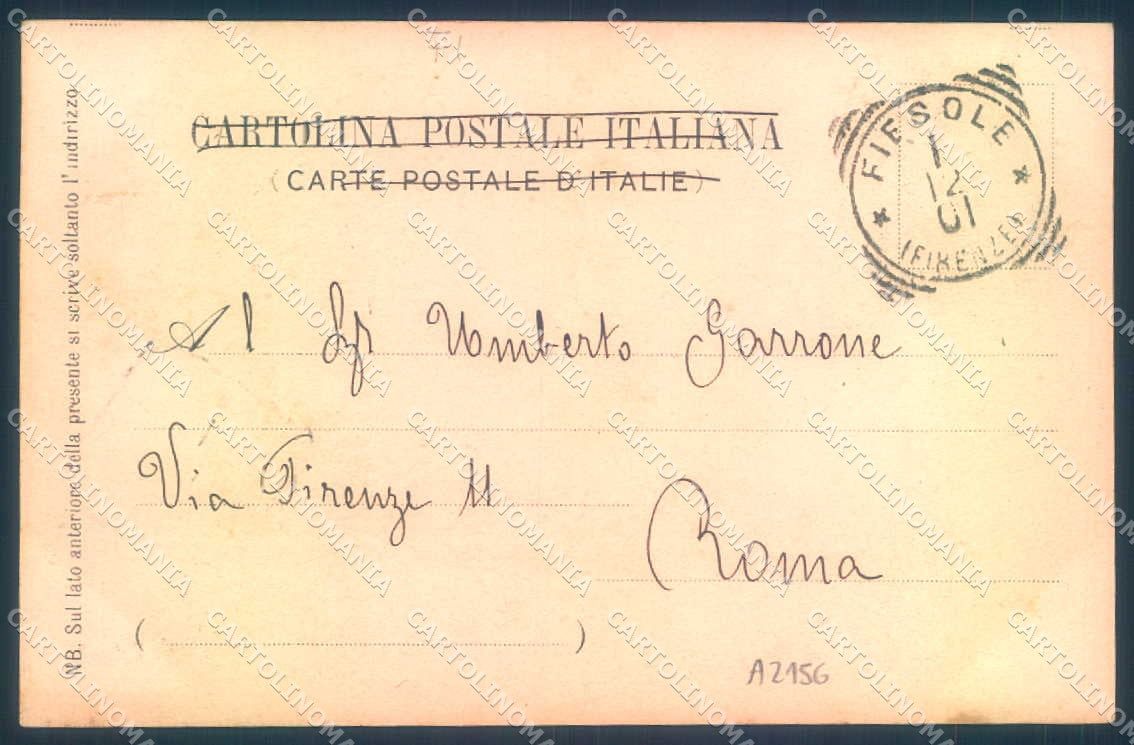 CARTOLINA POSTALE ITALIANA
(CARTE POSTALE D'ITALIE)
FIESOLE
1
12
01
(FIRENZE)
NB. Sul lato anteriore della presente si scrive soltanto l'indirizzo
Al Sgr Umberto Garrone
Via Firenze 11
Roma
( )
A2156
CARTOLINOMANIA